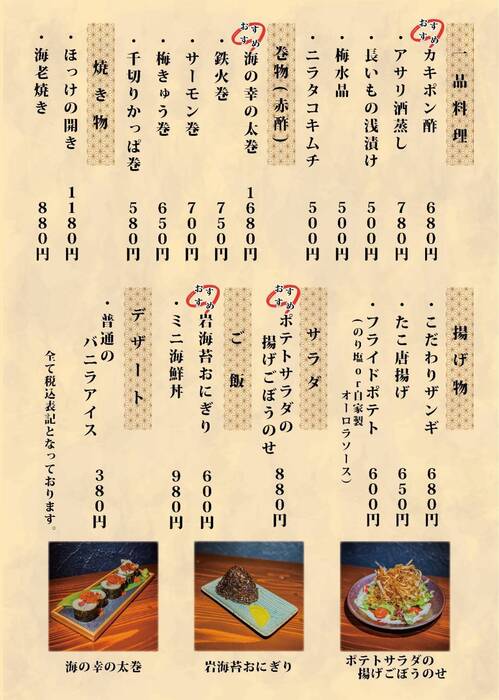 一品料理
おすすめ
・カキポン酢 680円
・アサリ酒蒸し 780円
・長いもの浅漬け 500円
・梅水晶 500円
・ニラタコキムチ 500円
巻物(赤酢)
おすすめ
・海の幸の太巻 1680円
・鉄火巻 750円
・サーモン巻 700円
・梅きゅう巻 650円
・千切りかっぱ巻 580円
焼き物
・ほっけの開き 1180円
・海老焼き 880円
揚げ物
・こだわりザンギ 680円
・たこ唐揚げ 650円
・フライドポテト 600円
(のり塩or自家製
オーロラソース)
サラダ
おすすめ
・ポテトサラダの
揚げごぼうのせ 880円
ご飯
おすすめ
・岩海苔おにぎり 600円
・ミニ海鮮丼 980円
デザート
・普通の
バニラアイス 380円
全て税込表記となっております。
海の幸の太巻
岩海苔おにぎり
ポテトサラダの
揚げごぼうのせ